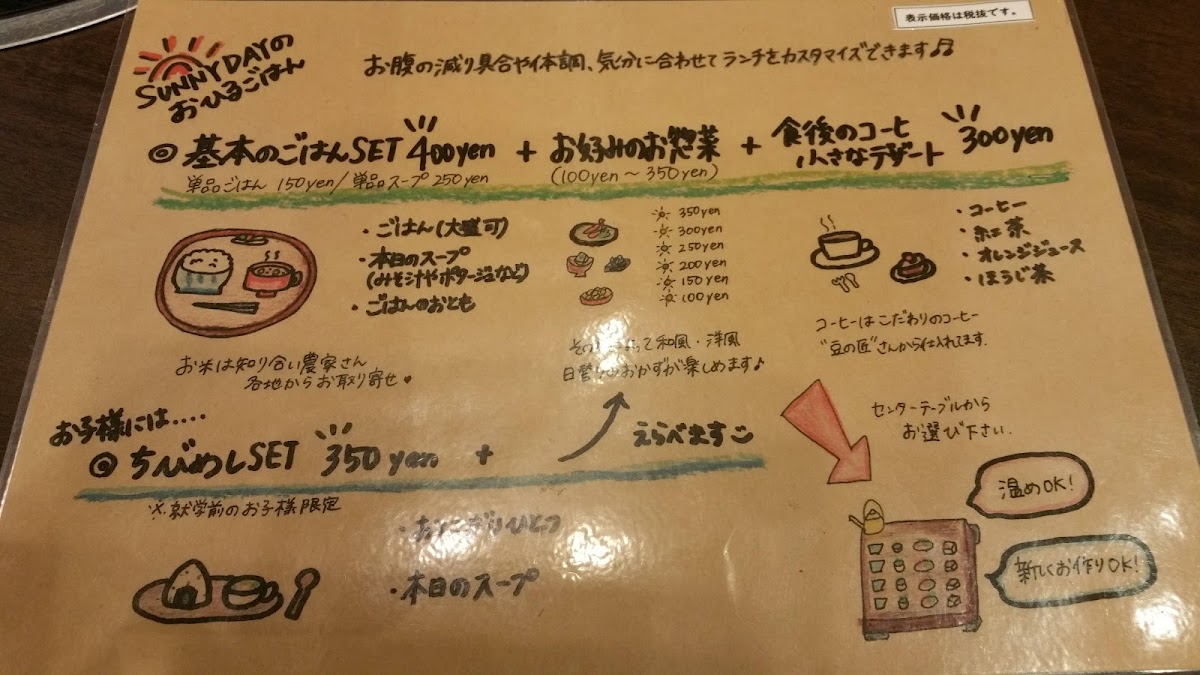 表示価格は税抜です。
SUNNY DAYの
おひるごはん
お腹の減り具合や体調、気分に合わせてランチをカスタマイズできます♬
◎基本のごはんSET 400yen + お好みのお惣菜 + 食後のコーヒー 小さなデザート 300yen
単品ごはん 150yen/単品スープ 250yen
(100yen～350yen)
・ごはん(大盛可)
・本日のスープ
(みそ汁やポタージュなど)
・ごはんのおとも
お米は知り合い農家さん
各地からお取り寄せ♥
350yen
300yen
250yen
200yen
150yen
100yen
和風・洋風
日替りのおかずが楽しめます♪
・コーヒー
・紅茶
・オレンジジュース
・ほうじ茶
コーヒーはこだわりのコーヒー
"豆の匠"さんから仕入れてます。
お子様には....
◎ちびめしSET 350yen +
えらべます
※就学前のお子様限定
・おにぎりひとつ
・本日のスープ
センターテーブルから
お選び下さい.
温めOK!
新しくお作りOK!